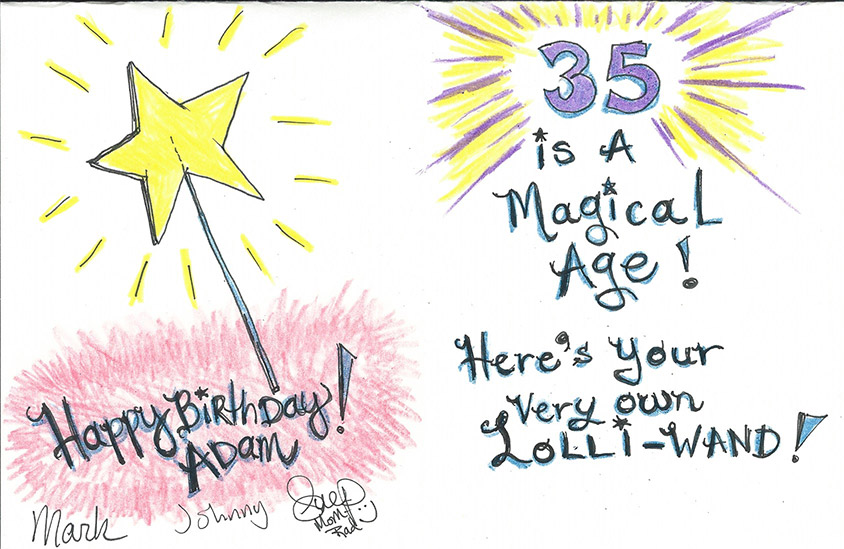 Happy Birthday!
Adam
Mark Johnny
Mom &
35
is A
Magical
Age!
Here's your
very own
Lolli-Wand!